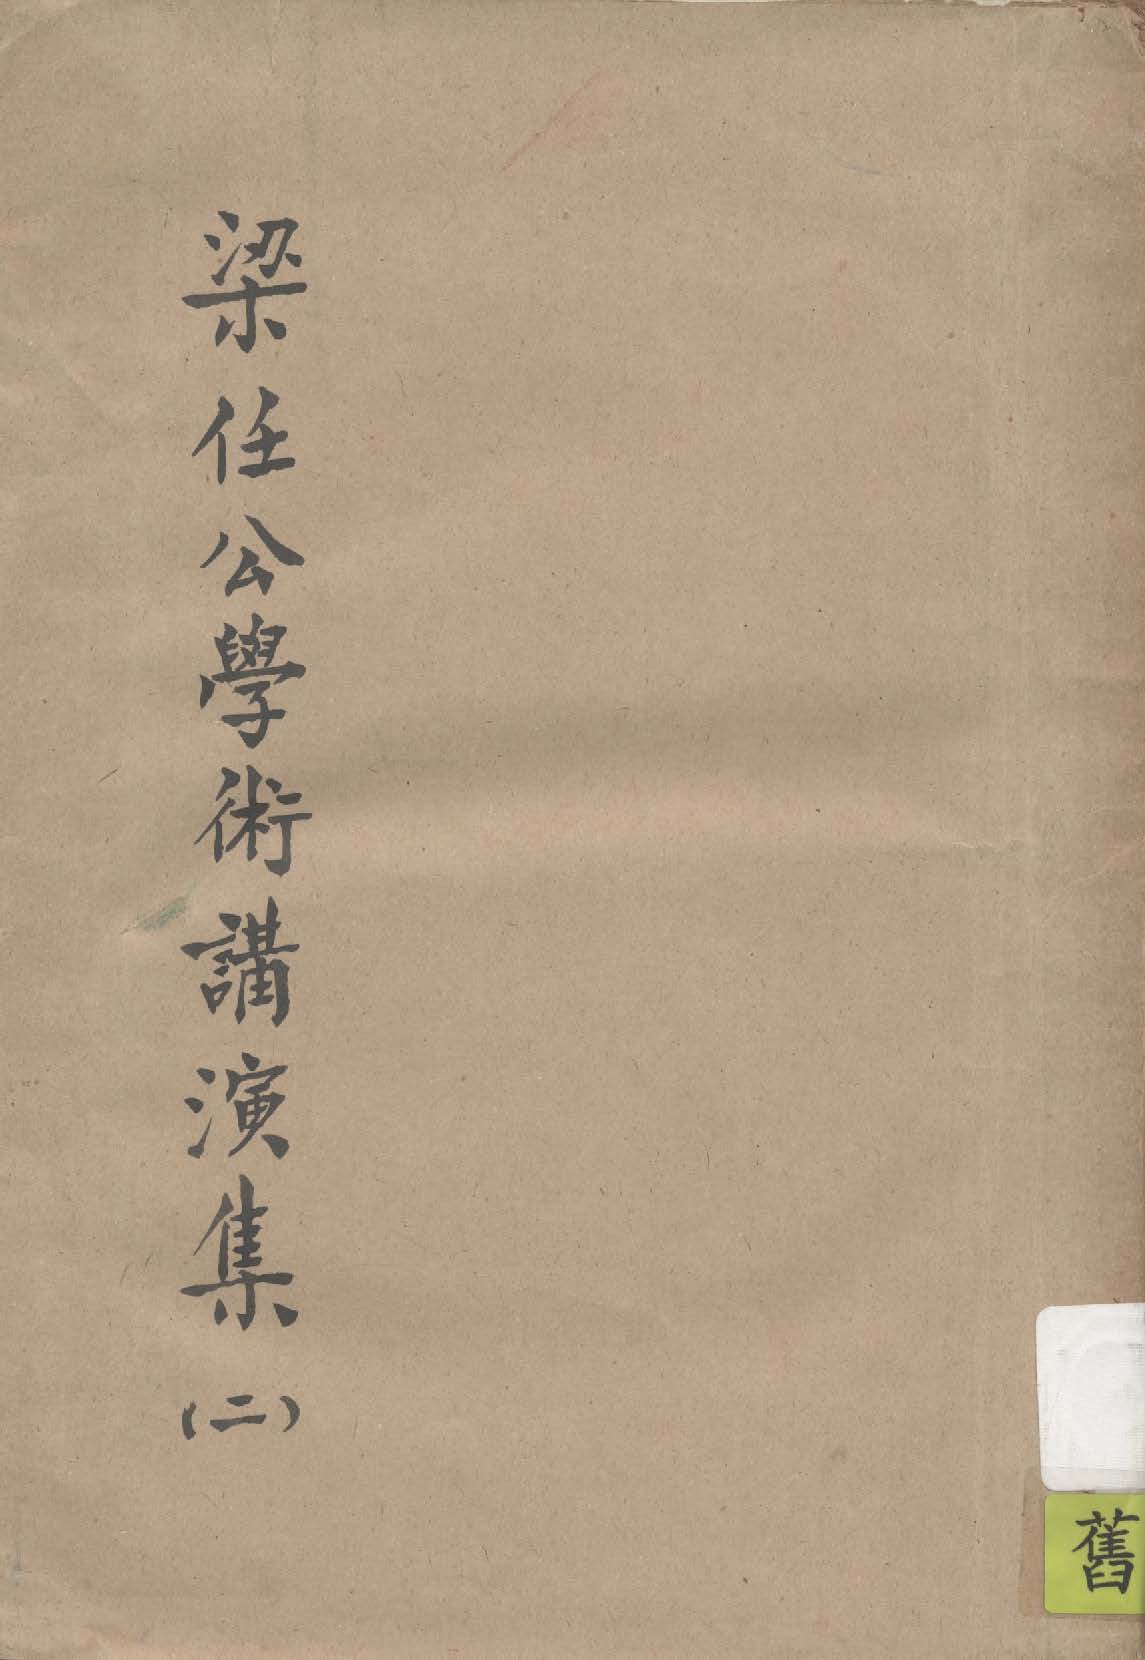 梁任公學術講演集(二)
舊